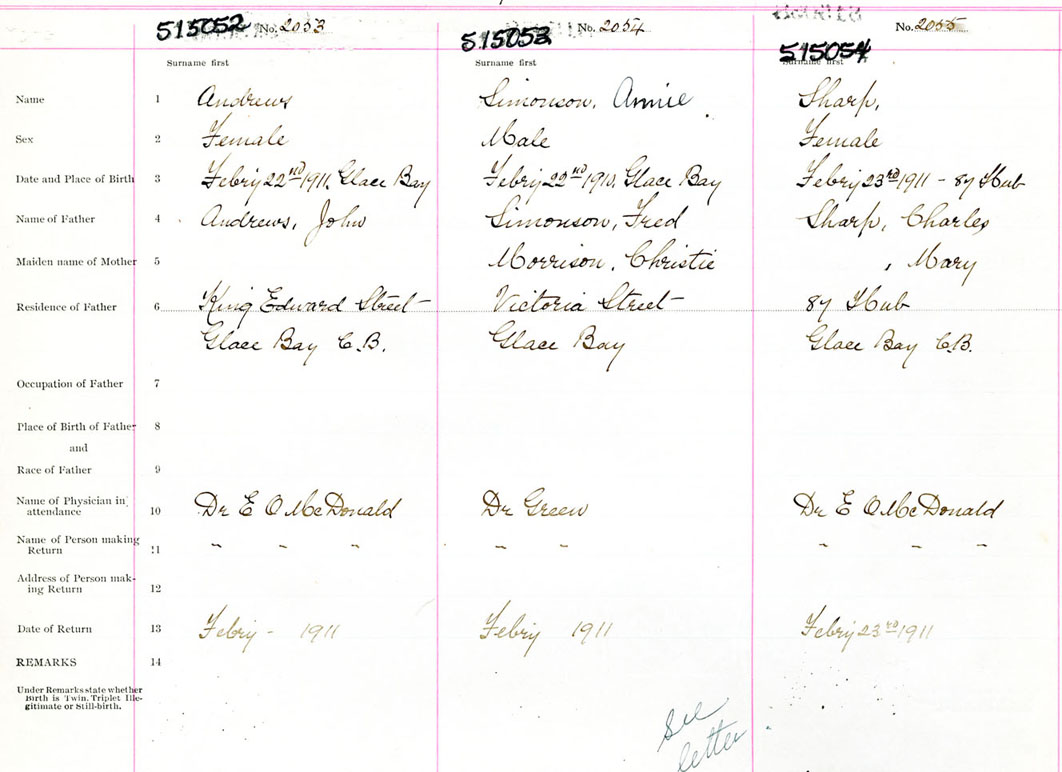 515052 No. 2053 515053 No. 2054 515054 No. 2055
Surname first Surname first Surname first
Name 1 Andrews Simonson, Annie Sharp,
Sex 2 Female Male Female
Date and Place of Birth 3 Febry 22nd 1911, Glace Bay Febry 22nd 1911, Glace Bay Febry 23rd 1911 - 87 Hub
Name of Father 4 Andrews, John Simonson, Fred Sharp, Charles
Maiden name of Mother 5 Morrison, Christie , Mary
Residence of Father 6 King Edward Street Victoria Street 87 Hub
Glace Bay C.B. Glace Bay Glace Bay C.B.
Occupation of Father 7
Place of Birth of Father 8
and
Race of Father 9
Name of Physician in
attendance 10 Dr E O McDonald Dr Green Dr E O McDonald
Name of Person making
Return 11 " " " " " " " "
Address of Person mak-
ing Return 12
Date of Return 13 Febry - 1911 Febry 1911 Febry 23rd 1911
REMARKS 14
Under Remarks state whether
Birth is Twin, Triplet Ille-
gitimate or Still-birth.
See
letter